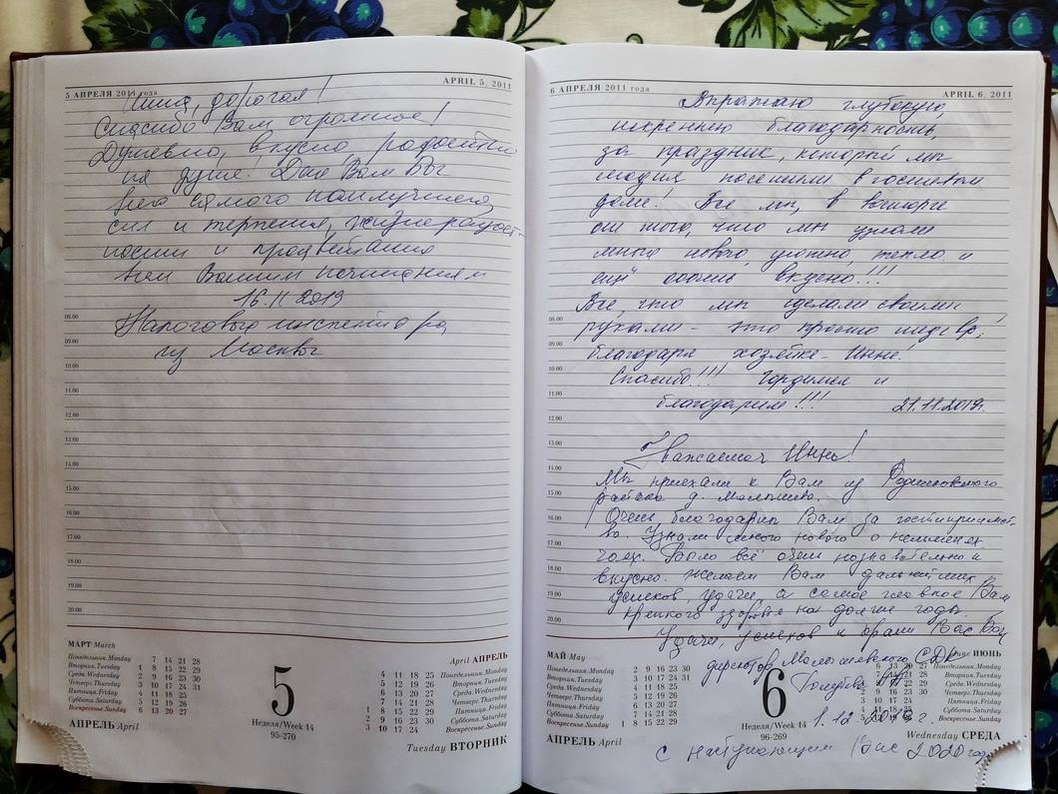 5 АПРЕЛЯ 2011 года
APRIL 5, 2011
Инна, дорогая!
Спасибо Вам огромное!
Душевно, вкусно, радостно
на душе! Дай Вам Бог
всего самого наилучшего,
сил и терпения, жизнерадост-
ности и процветания
всем Вашим начинаниям
16.11 2019
Налоговые инспектора
из Москвы
08.00
09.00
10.00
11.00
12.00
13.00
14.00
15.00
16.00
17.00
18.00
19.00
20.00
МАРТ March
Понедельник.Monday 7 14 21 28
Вторник.Tuesday 1 8 15 22 29
Среда.Wednesday 2 9 16 23 30
Четверг.Thursday 3 10 17 24 31
Пятница.Friday 4 11 18 25
Суббота.Saturday 5 12 19 26
Воскресенье.Sunday 6 13 20 27
АПРЕЛЬ April
5
Неделя/Week 14
95-270
April АПРЕЛЬ
4 11 18 25 Понедельник.Monday
5 12 19 26 Вторник.Tuesday
6 13 20 27 Среда.Wednesday
7 14 21 28 Четверг.Thursday
1 8 15 22 29 Пятница.Friday
2 9 16 23 30 Суббота.Saturday
3 10 17 24 Воскресенье.Sunday
Tuesday ВТОРНИК
6 АПРЕЛЯ 2011 года
APRIL 6, 2011
Выражаю глубокую,
искреннюю благодарность,
за праздник, который мы
сегодня посетили в гостевом
доме! Все мы, в восторге
от того, что мы узнали
много нового, уютно, тепло и
ещё очень вкусно!!!
Всё, что мы сделали своими
руками - это просто шедевр,
благодаря хозяйке - Инне!
Спасибо!!! Гордимся и
благодарим!!! 21.11.2019г.
Уважаемая Инна!
Мы приехали к Вам из Родниковского
района д. Малышево.
Очень благодарны Вам за гостеприимст-
во. Узнали много нового о
чаях. Было всё очень познавательно и
вкусно. Желаем Вам дальнейших
успехов, удачи, а самое главное Вам
крепкого здоровья на долгие годы.
Удачи, успехов и храни Вас Бог
директор Малышевского СДК
1.12.2019г.
С наступающим Вас 2020 годом
08.00
09.00
10.00
11.00
12.00
13.00
14.00
15.00
16.00
17.00
18.00
19.00
20.00
МАЙ May
Понедельник.Monday 2 9 16 23 30
Вторник.Tuesday 3 10 17 24 31
Среда.Wednesday 4 11 18 25
Четверг.Thursday 5 12 19 26
Пятница.Friday 6 13 20 27
Суббота.Saturday 7 14 21 28
Воскресенье.Sunday 1 8 15 22 29
АПРЕЛЬ April
6
Неделя/Week 14
96-269
ИЮНЬ
6 13 20 27 Понедельник.Monday
Вторник.Tuesday
Среда.Wednesday
9 16 23 30 Четверг.Thursday
Пятница.Friday
Суббота.Saturday
Воскресенье.Sunday
Wednesday СРЕДА